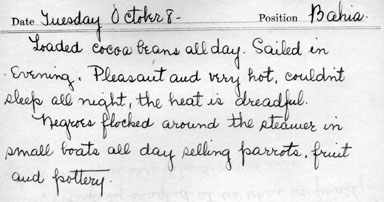 Date Tuesday October 8- Position Bahia.
Loaded cocoa beans all day. Sailed in
Evening. Pleasant and very hot, couldn't
sleep all night, the heat is dreadful.
Negroes flocked around the steamer in
small boats all day selling parrots, fruit
and pottery.